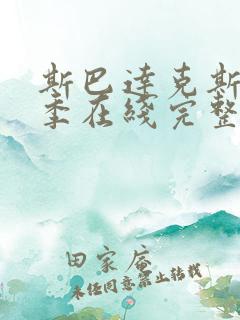 斯巴达克斯
季在线完整
田家庵
未经同意禁止转载